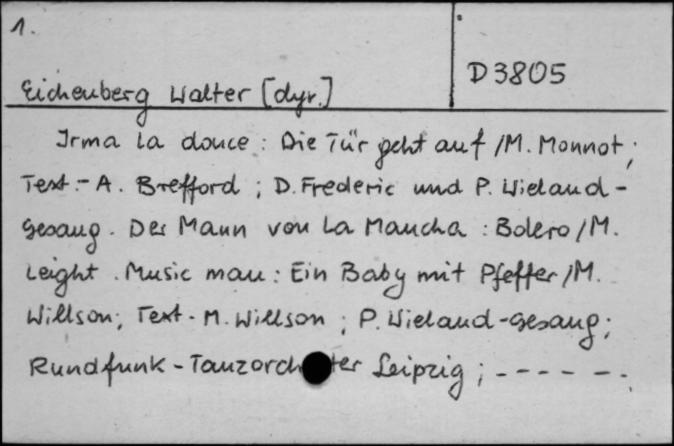 1.
D 3805
Eichenberg Walter [dyr.]
Irma la douce : Die Tür geht auf /M. Monnot ;
Text.- A. Brefford ; D. Frederic und P. Wieland-
gesang. Der Mann von La Mancha : Bolero /M.
Leight. Music man : Ein Baby mit Pfeffer /M.
Willson; Text - M. Willson ; P. Wieland-gesang;
Rundfunk - Tanzorch ter Leipzig ; - - - - - .